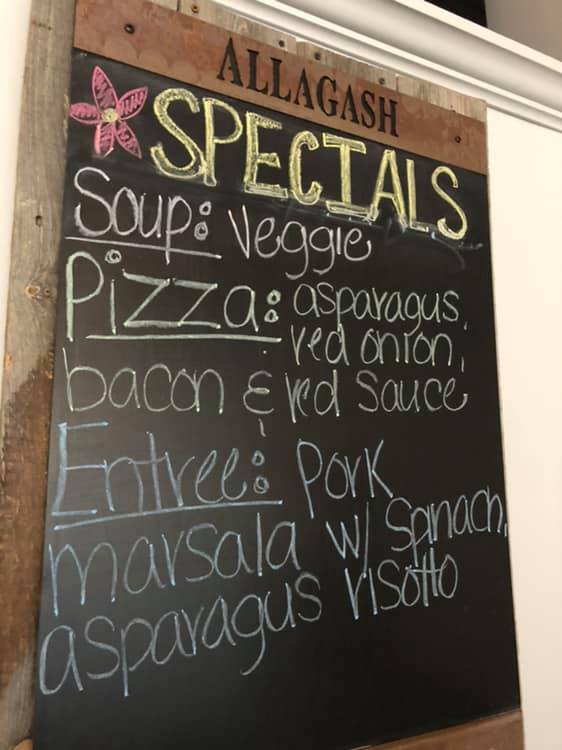 ALLAGASH
SPECIALS
Soup: Veggie
Pizza: asparagus,
red onion,
bacon & red Sauce
Entree: Pork
marsala w/ Spinach,
asparagus risotto